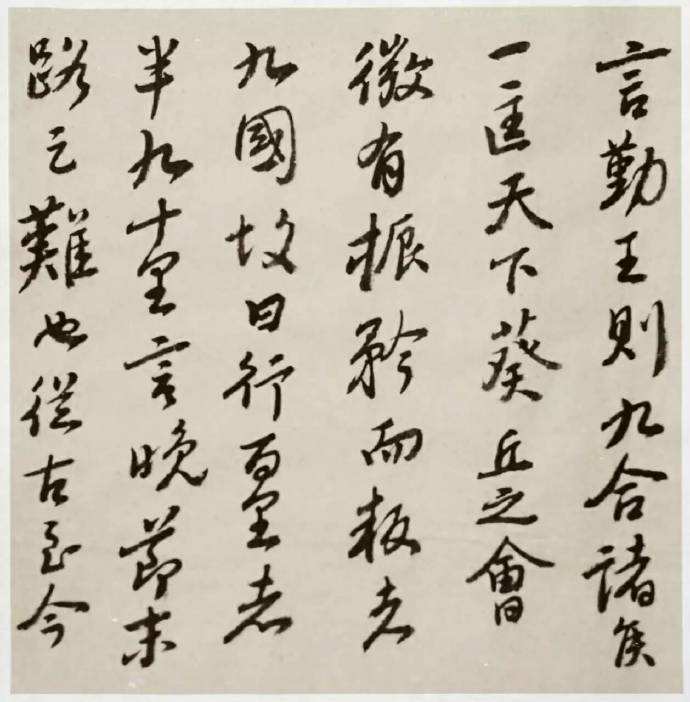 言勤王則九合諸侯
一匡天下葵丘之會
微有振矜而叛者
九國故曰行百里者
半九十里言晚節末
路之難也從古至今